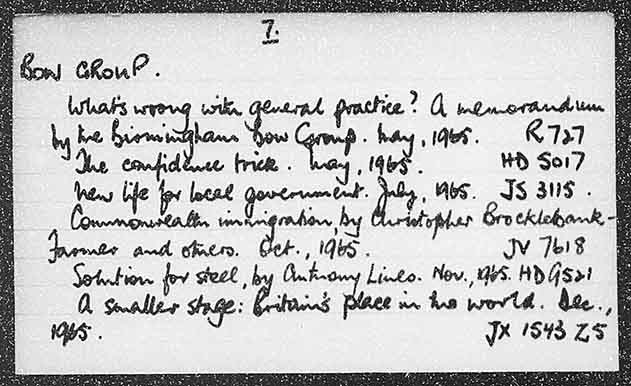 7.
BOW GROUP.
What's wrong with general practice? A memorandum
by the Birmingham Bow Group. May, 1965. R 727
The confidence trick. May, 1965. HD 5017
New life for local government. July, 1965. JS 3115.
Commonwealth immigration, by Christopher Brocklebank-
Fowler and others. Oct., 1965. JV 7618
Solution for steel, by Anthony Lines. Nov., 1965. HD 9521
A smaller stage: Britain's place in the world. Dec.,
1965. JX 1543 Z5